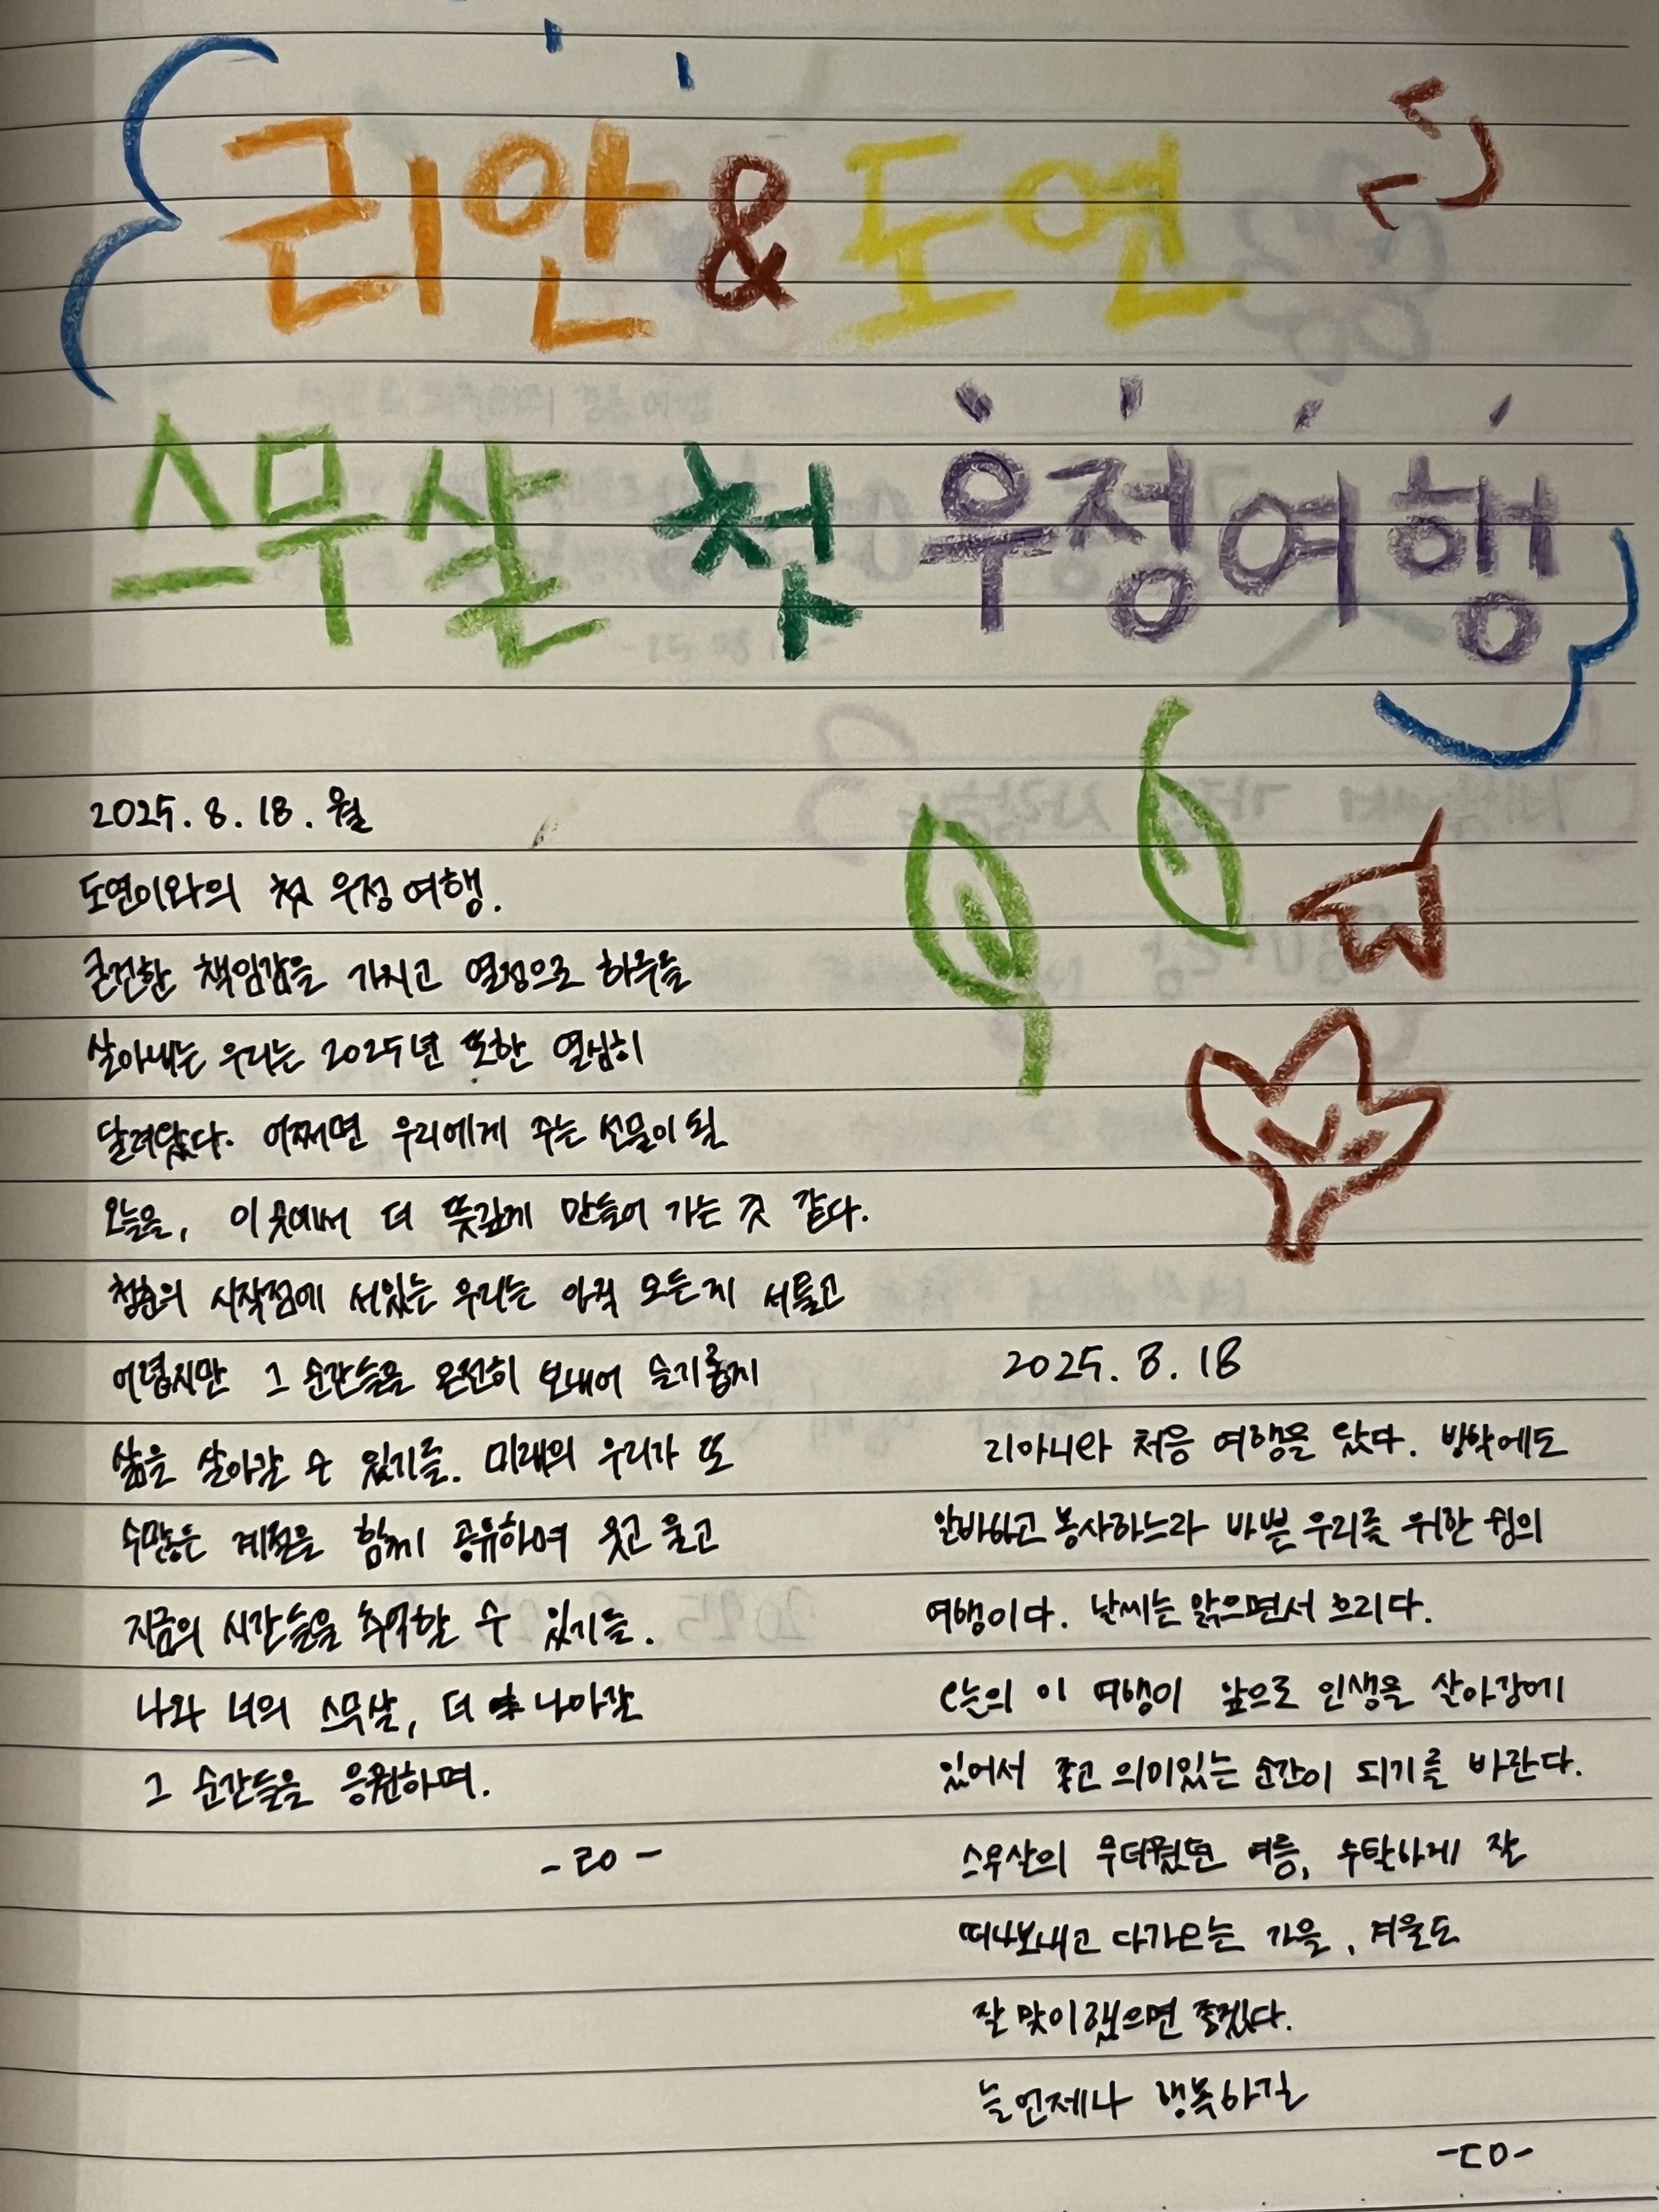 리안 & 도연
스무살 첫 우정여행
2025. 8. 18. 월
도연이와의 첫 우정여행.
굳건한 책임감을 가지고 열정으로 하루를
살아내는 우리는 2025년 또한 열심히
달려왔다. 어쩌면 우리에게 주는 선물이 될
오늘을, 이 곳에서 더 뜻깊게 만들어 가는 것 같다.
청춘의 시작점에 서있는 우리는 아직 모든게 서툴고
어렵지만 그 순간들을 온전히 보내어 슬기롭게
삶을 살아갈 수 있기를. 미래의 우리가 또
수많은 계절을 함께 공유하며 웃고 울고
지금의 시간들을 추억할 수 있기를.
나와 너의 스무살, 더 나아갈
그 순간들을 응원하며.
- ㄹㅇ -
2025. 8. 18
리아니랑 처음 여행을 왔다. 방학에도
알바하고 봉사하느라 바쁜 우리를 위한 쉼의
여행이다. 날씨는 맑으면서 흐리다.
오늘의 이 여행이 앞으로 인생을 살아감에
있어서 좋고 의미있는 순간이 되기를 바란다.
스무살의 무더웠던 여름, 수탁하게 잘
떠나보내고 다가오는 가을, 겨울도
잘 맞이했으면 좋겠다.
늘 언제나 행복하길
-ㄷㅇ-